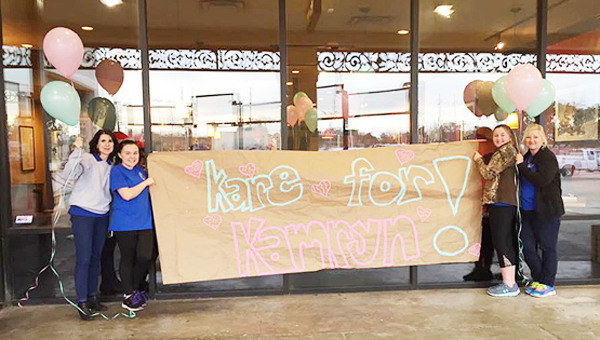 Kare for
Kamryn!